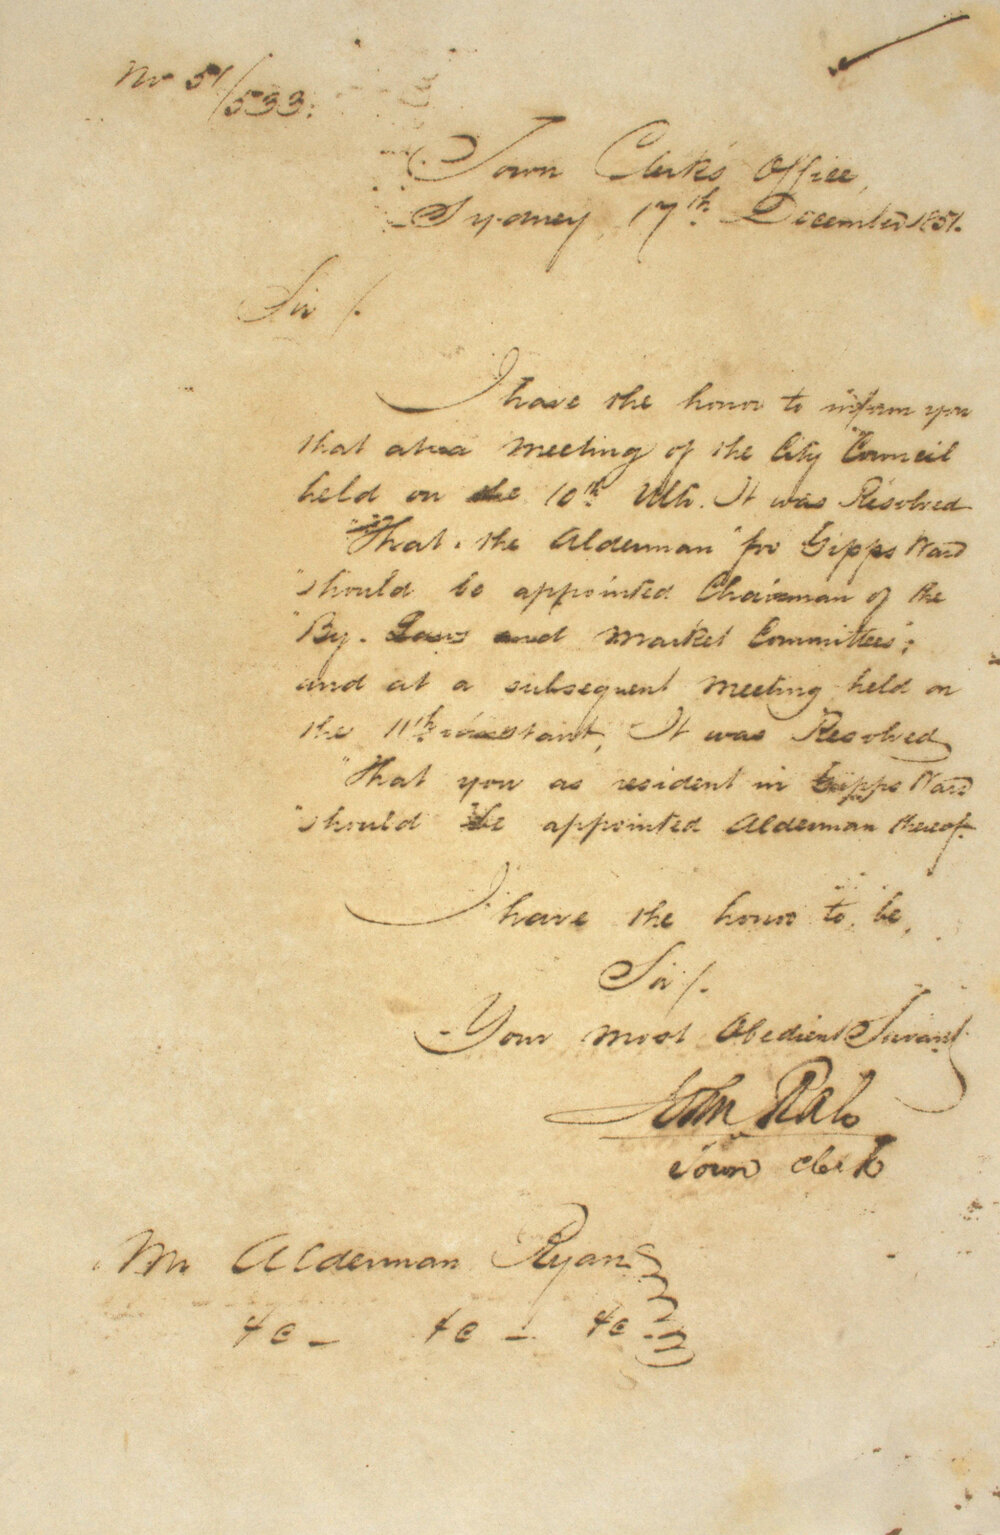 No 51/533.
Town Clerk's Office,
Sydney, 17th December 1851.
Sir/.
I have the honor to inform you
that at a Meeting of the City Council
held on the 10th Ulto. It was Resolved
"That the Alderman for Gipps Ward
"should be appointed Chairman of the
"By-Laws and Market Committees";
and at a subsequent Meeting held on
the 11th instant, It was Resolved
"That you as resident in Gipps Ward
"should be appointed Alderman thereof.
I have the honor to be,
Sir/.
Your most Obedient Servant
John
Town Clerk
Mr Alderman Ryan
&c - &c - &c -